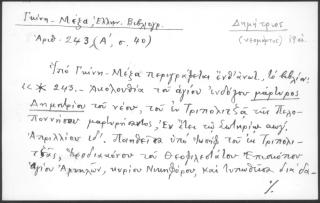 Γκίνη - Μέξα, Ἑλλην. Βιβλιογρ.
Ἀριθ. 243 (Α', σ. 40)
Δημήτριος
(νεομάρτυς) 19ου
Ὑπὸ Γκίνη - Μέξα περιγράφεται ἐνθάδε τὸ βιβλίον:
« * 243. - Ἀκολουθία τοῦ ἁγίου ἐνδόξου μάρτυρος
Δημητρίου τοῦ νέου, τοῦ ἐν Τριπολιτζᾷ τῆς Πελο-
ποννήσου μαρτυρήσαντος, Ἐν ἔτει τῷ Σωτηρίῳ αωγ.
Ἀπριλλίου ιδ'. Ποιηθεῖσα ὑπὸ Ἰωσὴφ τοῦ ἐκ Τριπολι-
τζᾶς, Ἱεροδιακόνου τοῦ Θεοφιλεστάτου Ἐπισκόπου
Ἁγίου Ἀμυκλῶν, κυρίου Νικηφόρου, καὶ τυπωθεῖσα διὰ δα-
./.